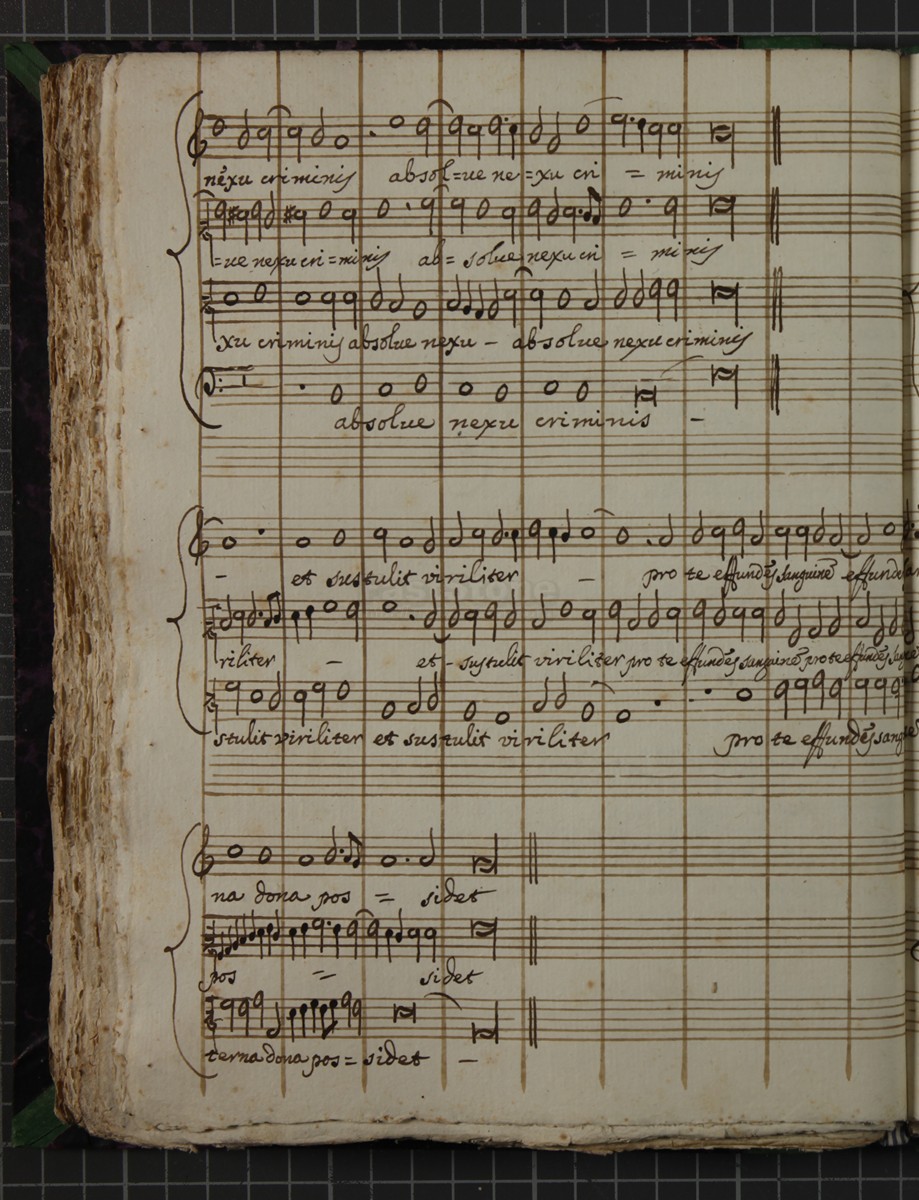 nexu criminis absol=ue ne=xu cri = minis
=ue nexu cri=minis ab= solue nexu cri = minis
xu criminis absolue nexu - absolue nexu criminis
absolue nexu criminis -
- et sustulit viriliter - pro te effundēs sanguinē effundē
riliter - et - sustulit viriliter pro te effundēs sanguinē pro te effundēs
stulit viriliter et sustulit viriliter pro te effundēs sangu
na dona pos = sidet
pos = sidet
terna dona pos= sidet -